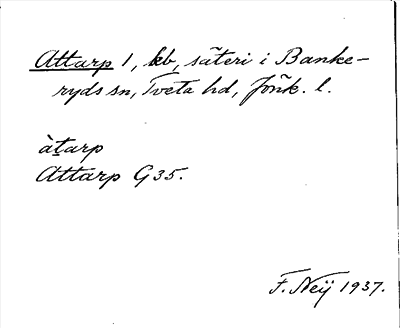 Attarp 1, kb, säteri i Banke-
ryds sn, Tveta hd, Jönk. l.
àtarp
Attarp G35.
F. Neij 1937.